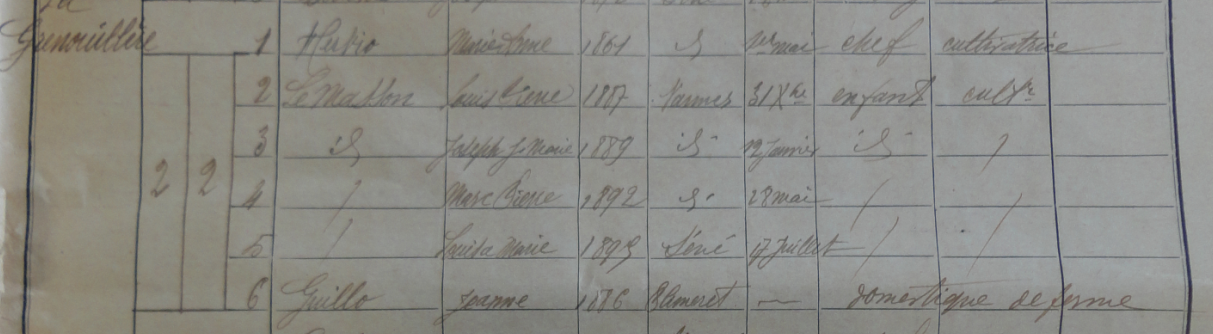 La
Grenouillère 1 Hubio Marie Anne 1861 id 1er mai chef cultivatrice
2 Le Masson Louis Pierre 1887 Vannes 31 Xbre enfant cultr
3 id Joseph J. Marie 1889 id 12 Janvier id /
2 2 4 / Marc Pierre 1892 id 28 mai / /
5 / Louisa Marie 1895 Séné 17 Juillet / /
6 Guillo Jeanne 1886 — domestique de ferme